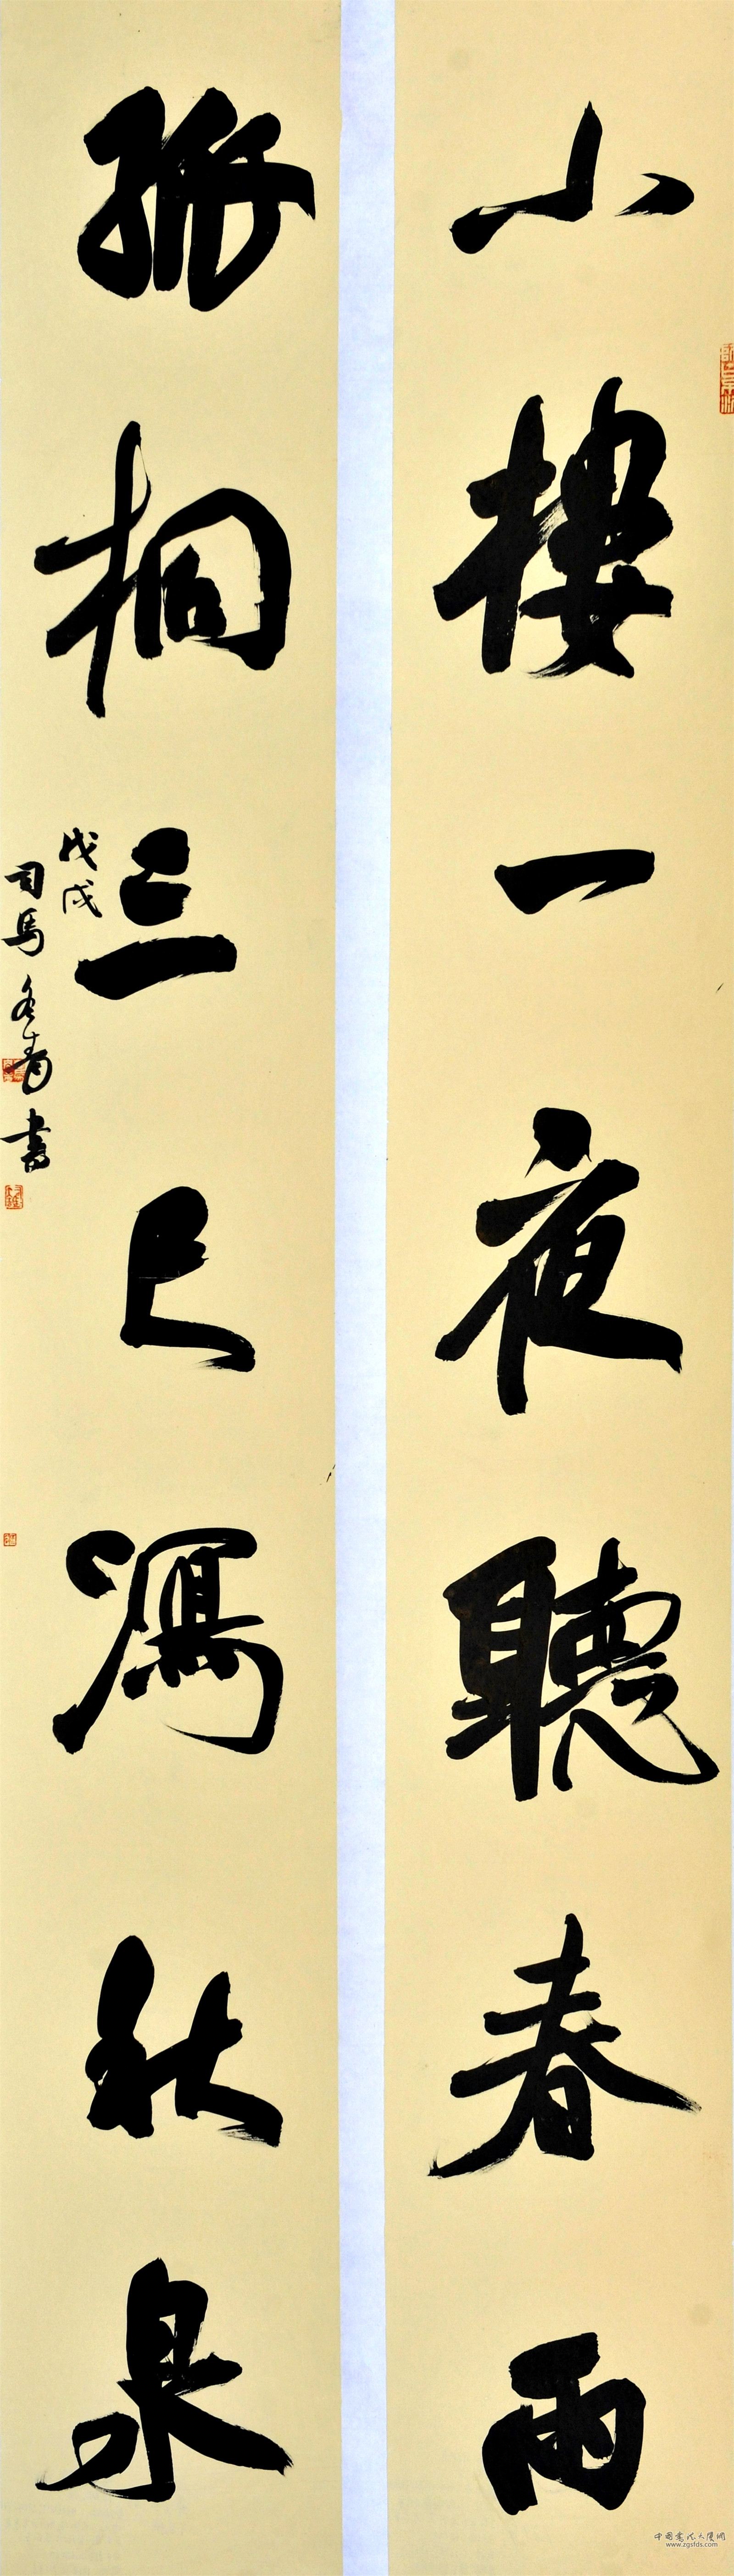 小樓一夜聽春雨
孤桐三尺瀉秋泉
戊戌
司馬冬青書
www.zgsfds.com